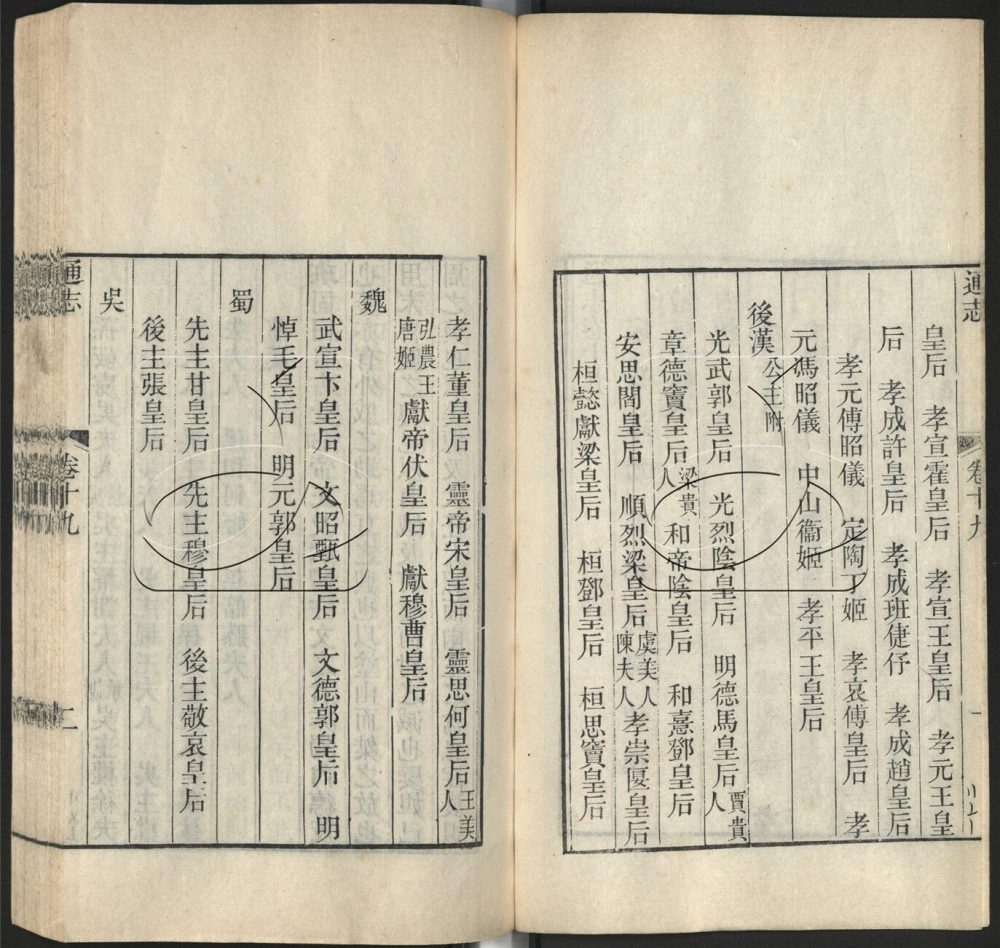 通志
卷十九
一
皇后　孝宣霍皇后　孝宣王皇后　孝元王皇
后　孝成許皇后　孝成班倢伃　孝成趙皇后
孝元傅昭儀　定陶丁姬　孝哀傅皇后　孝
元馮昭儀　中山衞姬　孝平王皇后
後漢公主附
光武郭皇后　光烈陰皇后　明德馬皇后賈貴人
章德竇皇后梁貴人　和帝陰皇后　和憙鄧皇后
安思閻皇后　順烈梁皇后虞美人陳夫人　孝崇匽皇后
桓懿獻梁皇后　桓鄧皇后　桓思竇皇后
孝仁董皇后　靈帝宋皇后　靈思何皇后王美人
弘農王唐姬　獻帝伏皇后　獻穆曹皇后
魏
武宣卞皇后　文昭甄皇后　文德郭皇后　明
悼毛皇后　明元郭皇后
蜀
先主甘皇后　先主穆皇后　後主敬哀皇后
後主張皇后
吳
通志
卷十九
二